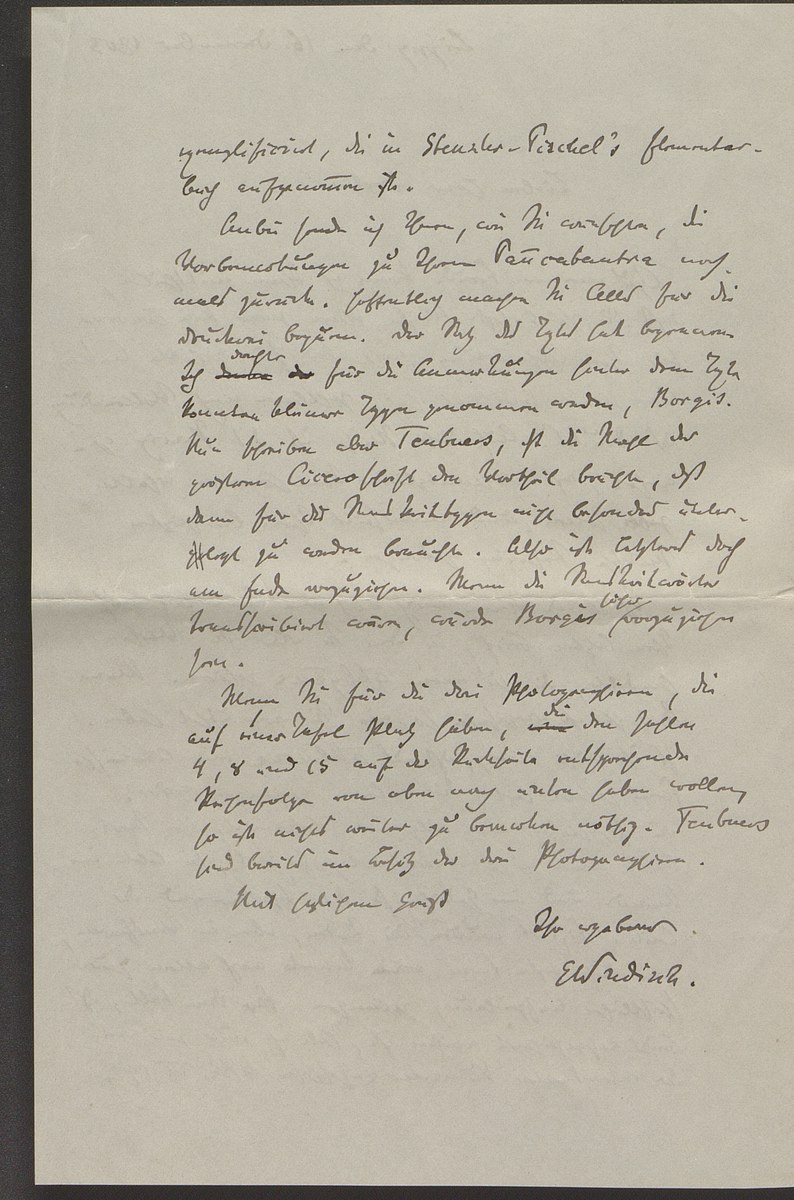 exemplificirt, die in Stenzler-Pischel's Elementar-
buch aufgenommen ist.
Anbei sende ich Ihnen, wie Sie wünschten, die
Vorbemerkungen zu Ihrem Pañcatantra noch-
mals zurück. Hoffentlich machen Sie Alles für die
Druckerei bequem. Der Satz des Textes hat begonnen.
Ich dachte für die Anmerkungen hinter dem Text
könnten kleinere Typen genommen werden, Borgis.
Nun schreiben aber Teubners, daß die Wahl der
größeren Ciceroschrift den Vortheil brächte, daß
dann für das Sanskrittypen nicht besonders unter-
gelegt zu werden brauchte. Also ist Letzteres doch
am Ende vorzuziehen. Wenn die Sanskritwörter
transscribirt wären, würde Borgis vorzuziehen
sein.
Wenn Sie für die drei Photographieen, die
auf einer Tafel Platz haben, die den Zahlen
4, 8 und 15 auf der Rückseite entsprechende
Reihenfolge von oben nach unten haben wollen,
so ist nichts weiter zu bemerken nöthig. Teubners
sind bereits im Besitz der drei Photographieen.
Mit herzlichem Gruß
Ihr ergebener
EWindisch.